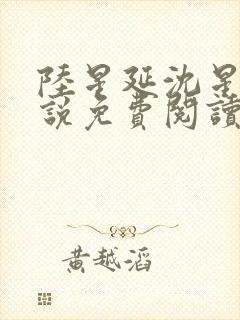 陸星延沈星
說免費閱讀
黃越滔